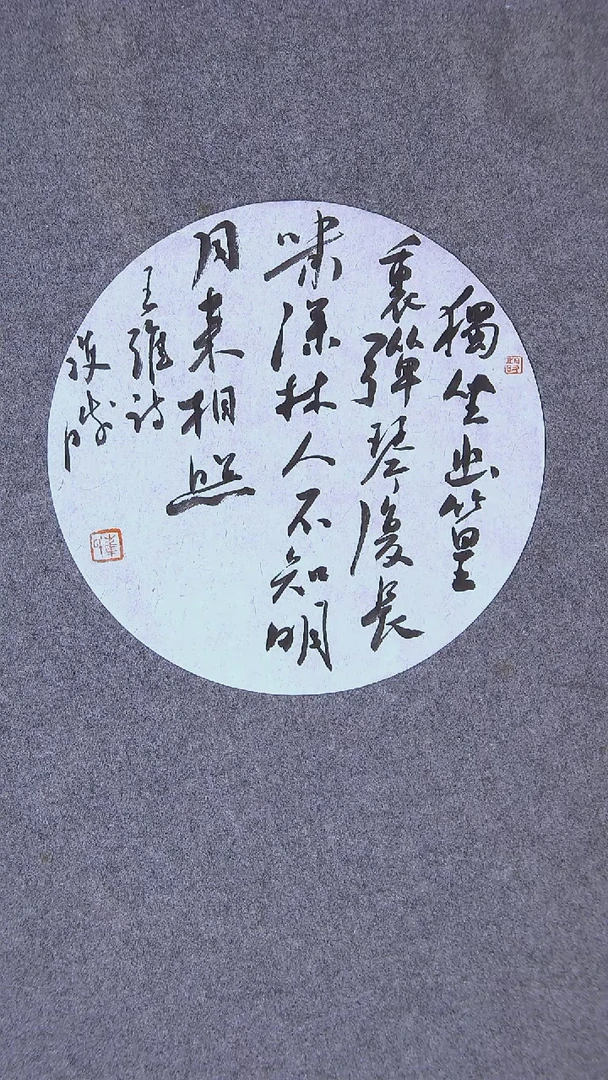 獨坐幽篁
裏彈琴復長
嘯深林人不知明
月來相照
王維詩